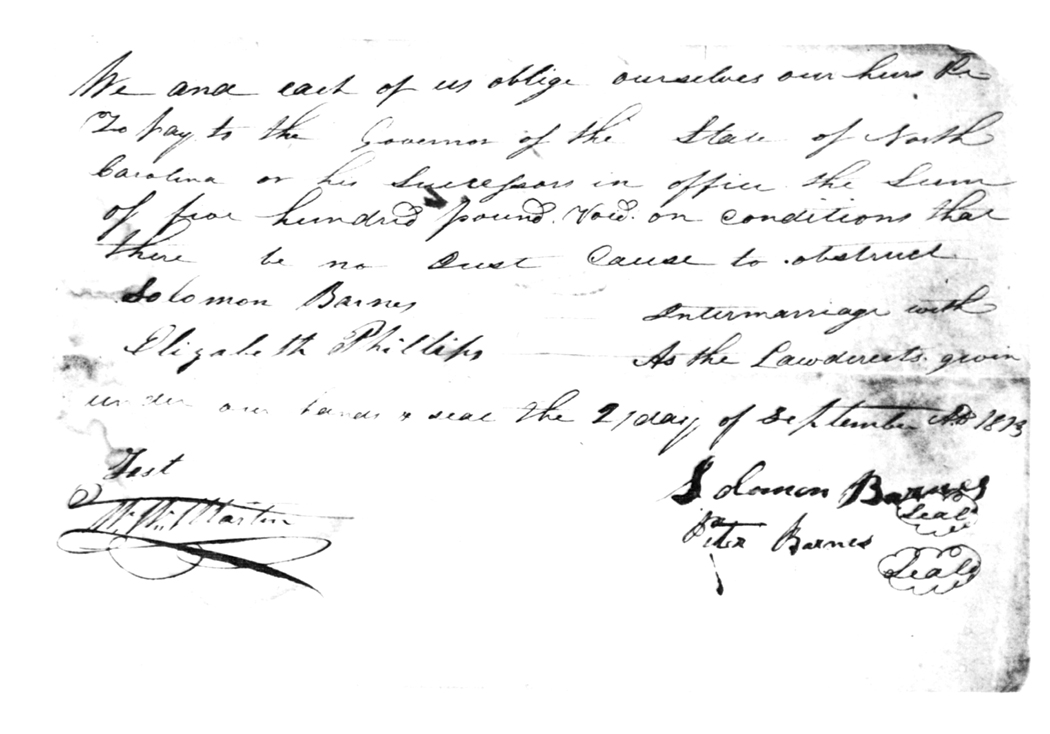 We and each of us oblige ourselves our heirs &c
To pay to the Governor of the State of North
Carolina or his Successors in office the Sum
of five hundred pound. Void. on conditions that
there be no Just Cause to obstruct
Solomon Barnes Intermarriage with
Elizabeth Phillips As the Law derects. givin
under our hands & seal the 21 day of September AD 1813
Test
Martin
Solomon Barnes
Seal
Peter Barnes
Seal